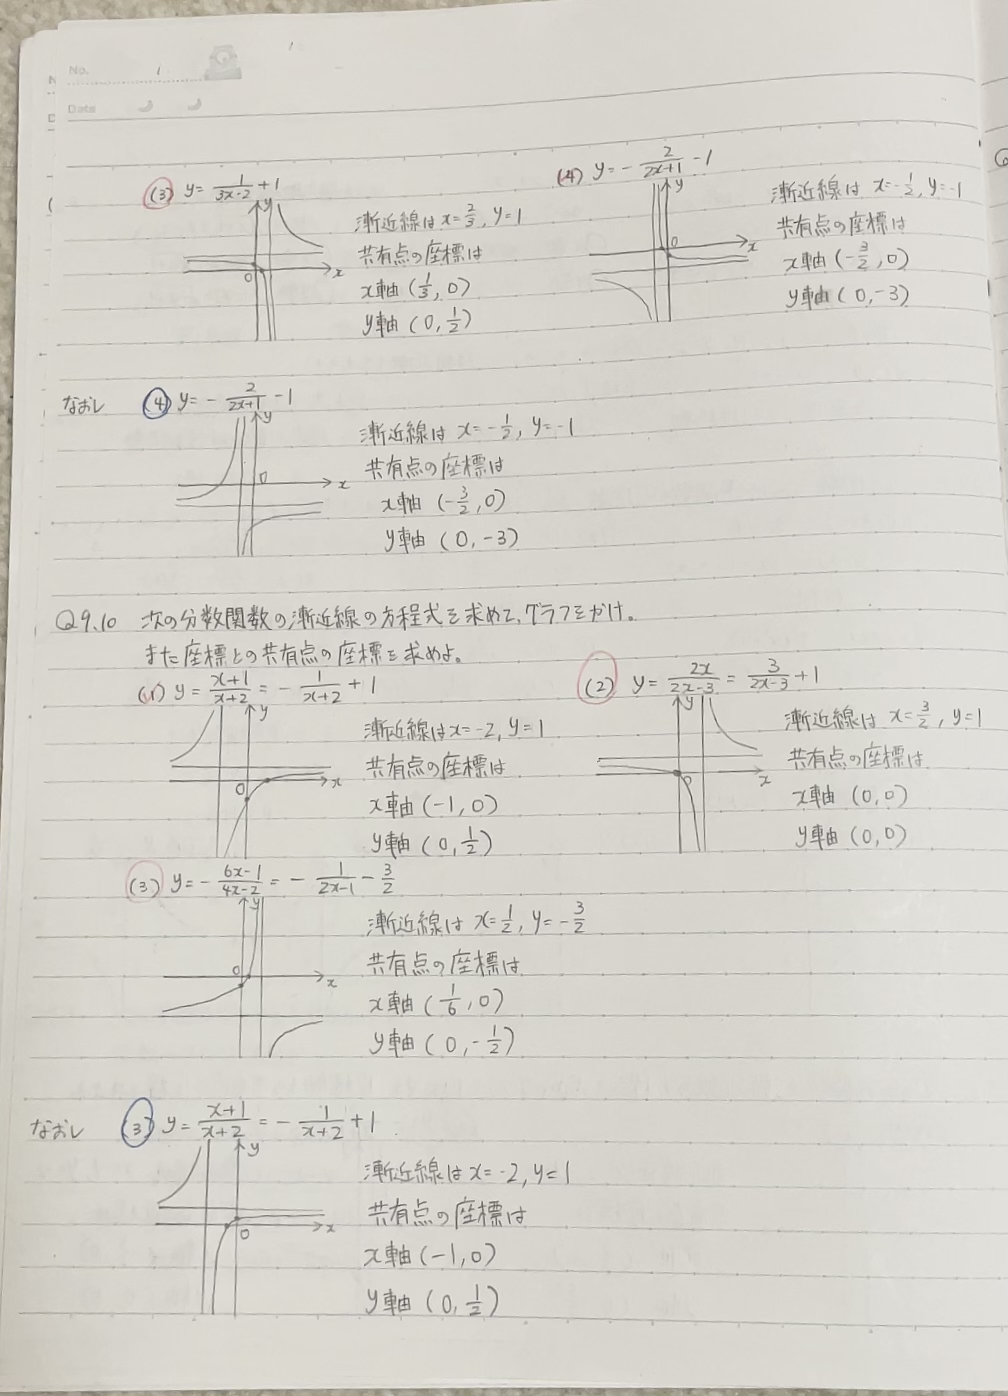 No. 1
Date
(3) y = 1/(3x-2) + 1
漸近線は x = 2/3, y = 1
共有点の座標は
x軸 (1/3, 0)
y軸 (0, 1/2)
(4) y = - 2/(2x+1) - 1
漸近線は x = -1/2, y = -1
共有点の座標は
x軸 (-3/2, 0)
y軸 (0, -3)
なおし (4) y = - 2/(2x+1) - 1
漸近線は x = -1/2, y = -1
共有点の座標は
x軸 (-3/2, 0)
y軸 (0, -3)
Q9.10 次の分数関数の漸近線の方程式を求めて、グラフをかけ。
また座標との共有点の座標を求めよ。
(1) y = (x+1)/(x+2) = - 1/(x+2) + 1
漸近線は x = -2, y = 1
共有点の座標は
x軸 (-1, 0)
y軸 (0, 1/2)
(2) y = 2x/(2x-3) = 3/(2x-3) + 1
漸近線は x = 3/2, y = 1
共有点の座標は
x軸 (0, 0)
y軸 (0, 0)
(3) y = - (6x-1)/(4x-2) = - 1/(2x-1) - 3/2
漸近線は x = 1/2, y = -3/2
共有点の座標は
x軸 (1/6, 0)
y軸 (0, -1/2)
なおし (3) y = (x+1)/(x+2) = - 1/(x+2) + 1
漸近線は x = -2, y = 1
共有点の座標は
x軸 (-1, 0)
y軸 (0, 1/2)